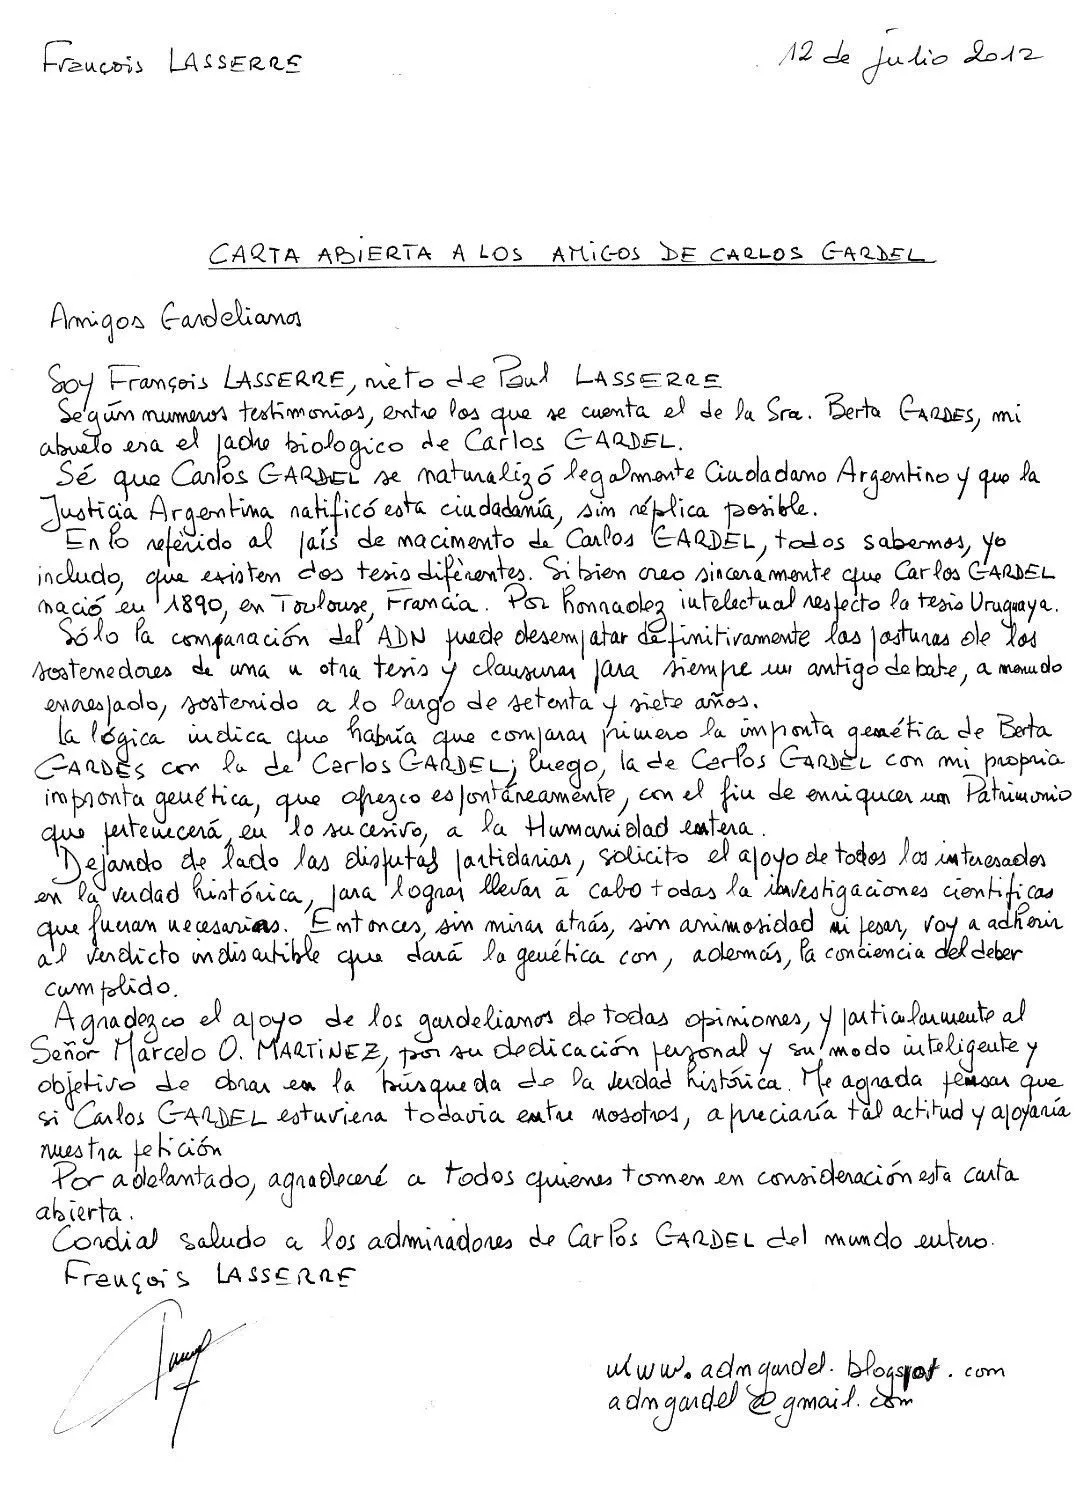 François LASSERRE
12 de julio 2012
CARTA ABIERTA A LOS AMIGOS DE CARLOS GARDEL
Amigos Gardelianos
Soy François LASSERRE, nieto de Paul LASSERRE
Según numeros testimonios, entre los que se cuenta el de la Sra. Berta GARDES, mi
abuelo era el padre biologico de Carlos GARDEL.
Sé que Carlos GARDEL se naturalizó legalmente Ciudadano Argentino y que la
Justicia Argentina ratificó esta ciudadanía, sin réplica posible.
En lo referido al país de nacimento de Carlos GARDEL, todos sabemos, yo
includo, que existen dos tesis diferentes. Si bien creo sinceramente que Carlos GARDEL
nació en 1890, en Toulouse, Francia. Por honradez intelectual respecto la tesis Uruguaya.
Sólo la comparación del ADN puede desempatar definitivamente las posturas de los
sostenedores de una u otra tesis y clausurar para siempre un antigo debate, a menudo
encrespado, sostenido a lo largo de setenta y siete años.
La lógica indica que habría que comparar primero la impronta genética de Berta
GARDES con la de Carlos GARDEL; luego, la de Carlos GARDEL con mi propria
impronta genética, que ofrezco espontáneamente, con el fin de enriquecer un Patrimonio
que pertenecerá, en lo sucesivo, a la Humanidad entera.
Dejando de lado las disputas partidarias, solicito el apoyo de todos los interesados
en la verdad histórica, para lograr llevar à cabo todas la investigaciones cientificas
que fueran necesarias. Entonces, sin mirar atrás, sin animosidad ni pesar, voy a adherir
al verdicto indiscutible que dará la genética con, además, la conciencia del deber
cumplido.
Agradezco el apoyo de los gardelianos de todas opiniones, y particularmente al
Señor Marcelo O. MARTINEZ, por su dedicación personal y su modo inteligente y
objetivo de obrar en la búsqueda de la verdad histórica. Me agrada pensar que
si Carlos GARDEL estuviera todavia entre nosotros, apreciaría tal actitud y apoyaría
nuestra petición
Por adelantado, agradeceré a todos quienes tomen en consideración esta carta
abierta.
Cordial saludo a los admiradores de Carlos GARDEL del mundo entero.
François LASSERRE
www.adngardel.blogspot.com
adngardel@gmail.com